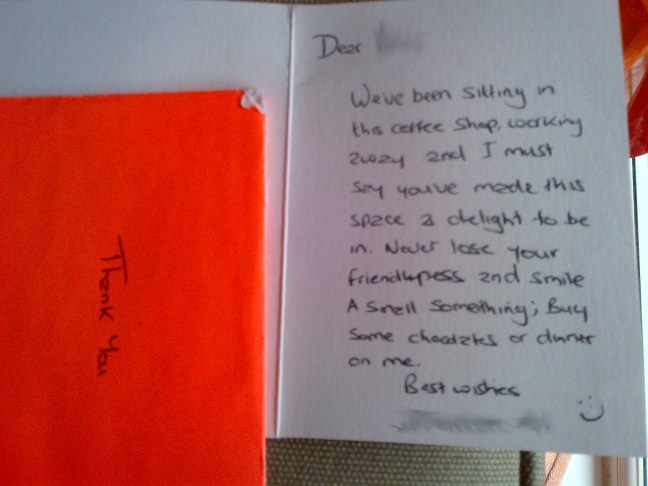 Dear
We've been sitting in
this coffee shop, working
away and I must
say you've made this
space a delight to be
in. Never lose your
friendlyness and smile
A small something; Buy
some chocolates or dinner
on me.
Best wishes
:)
Thank You